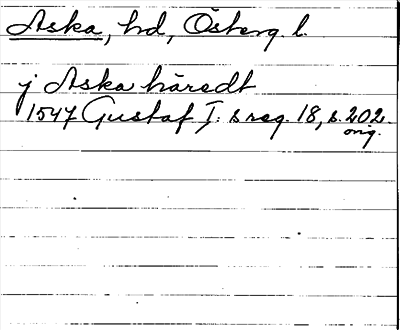 Aska, hd, Österg. l.
j Aska häredt
1547 Gustaf I:s reg. 18, s. 202.
orig.